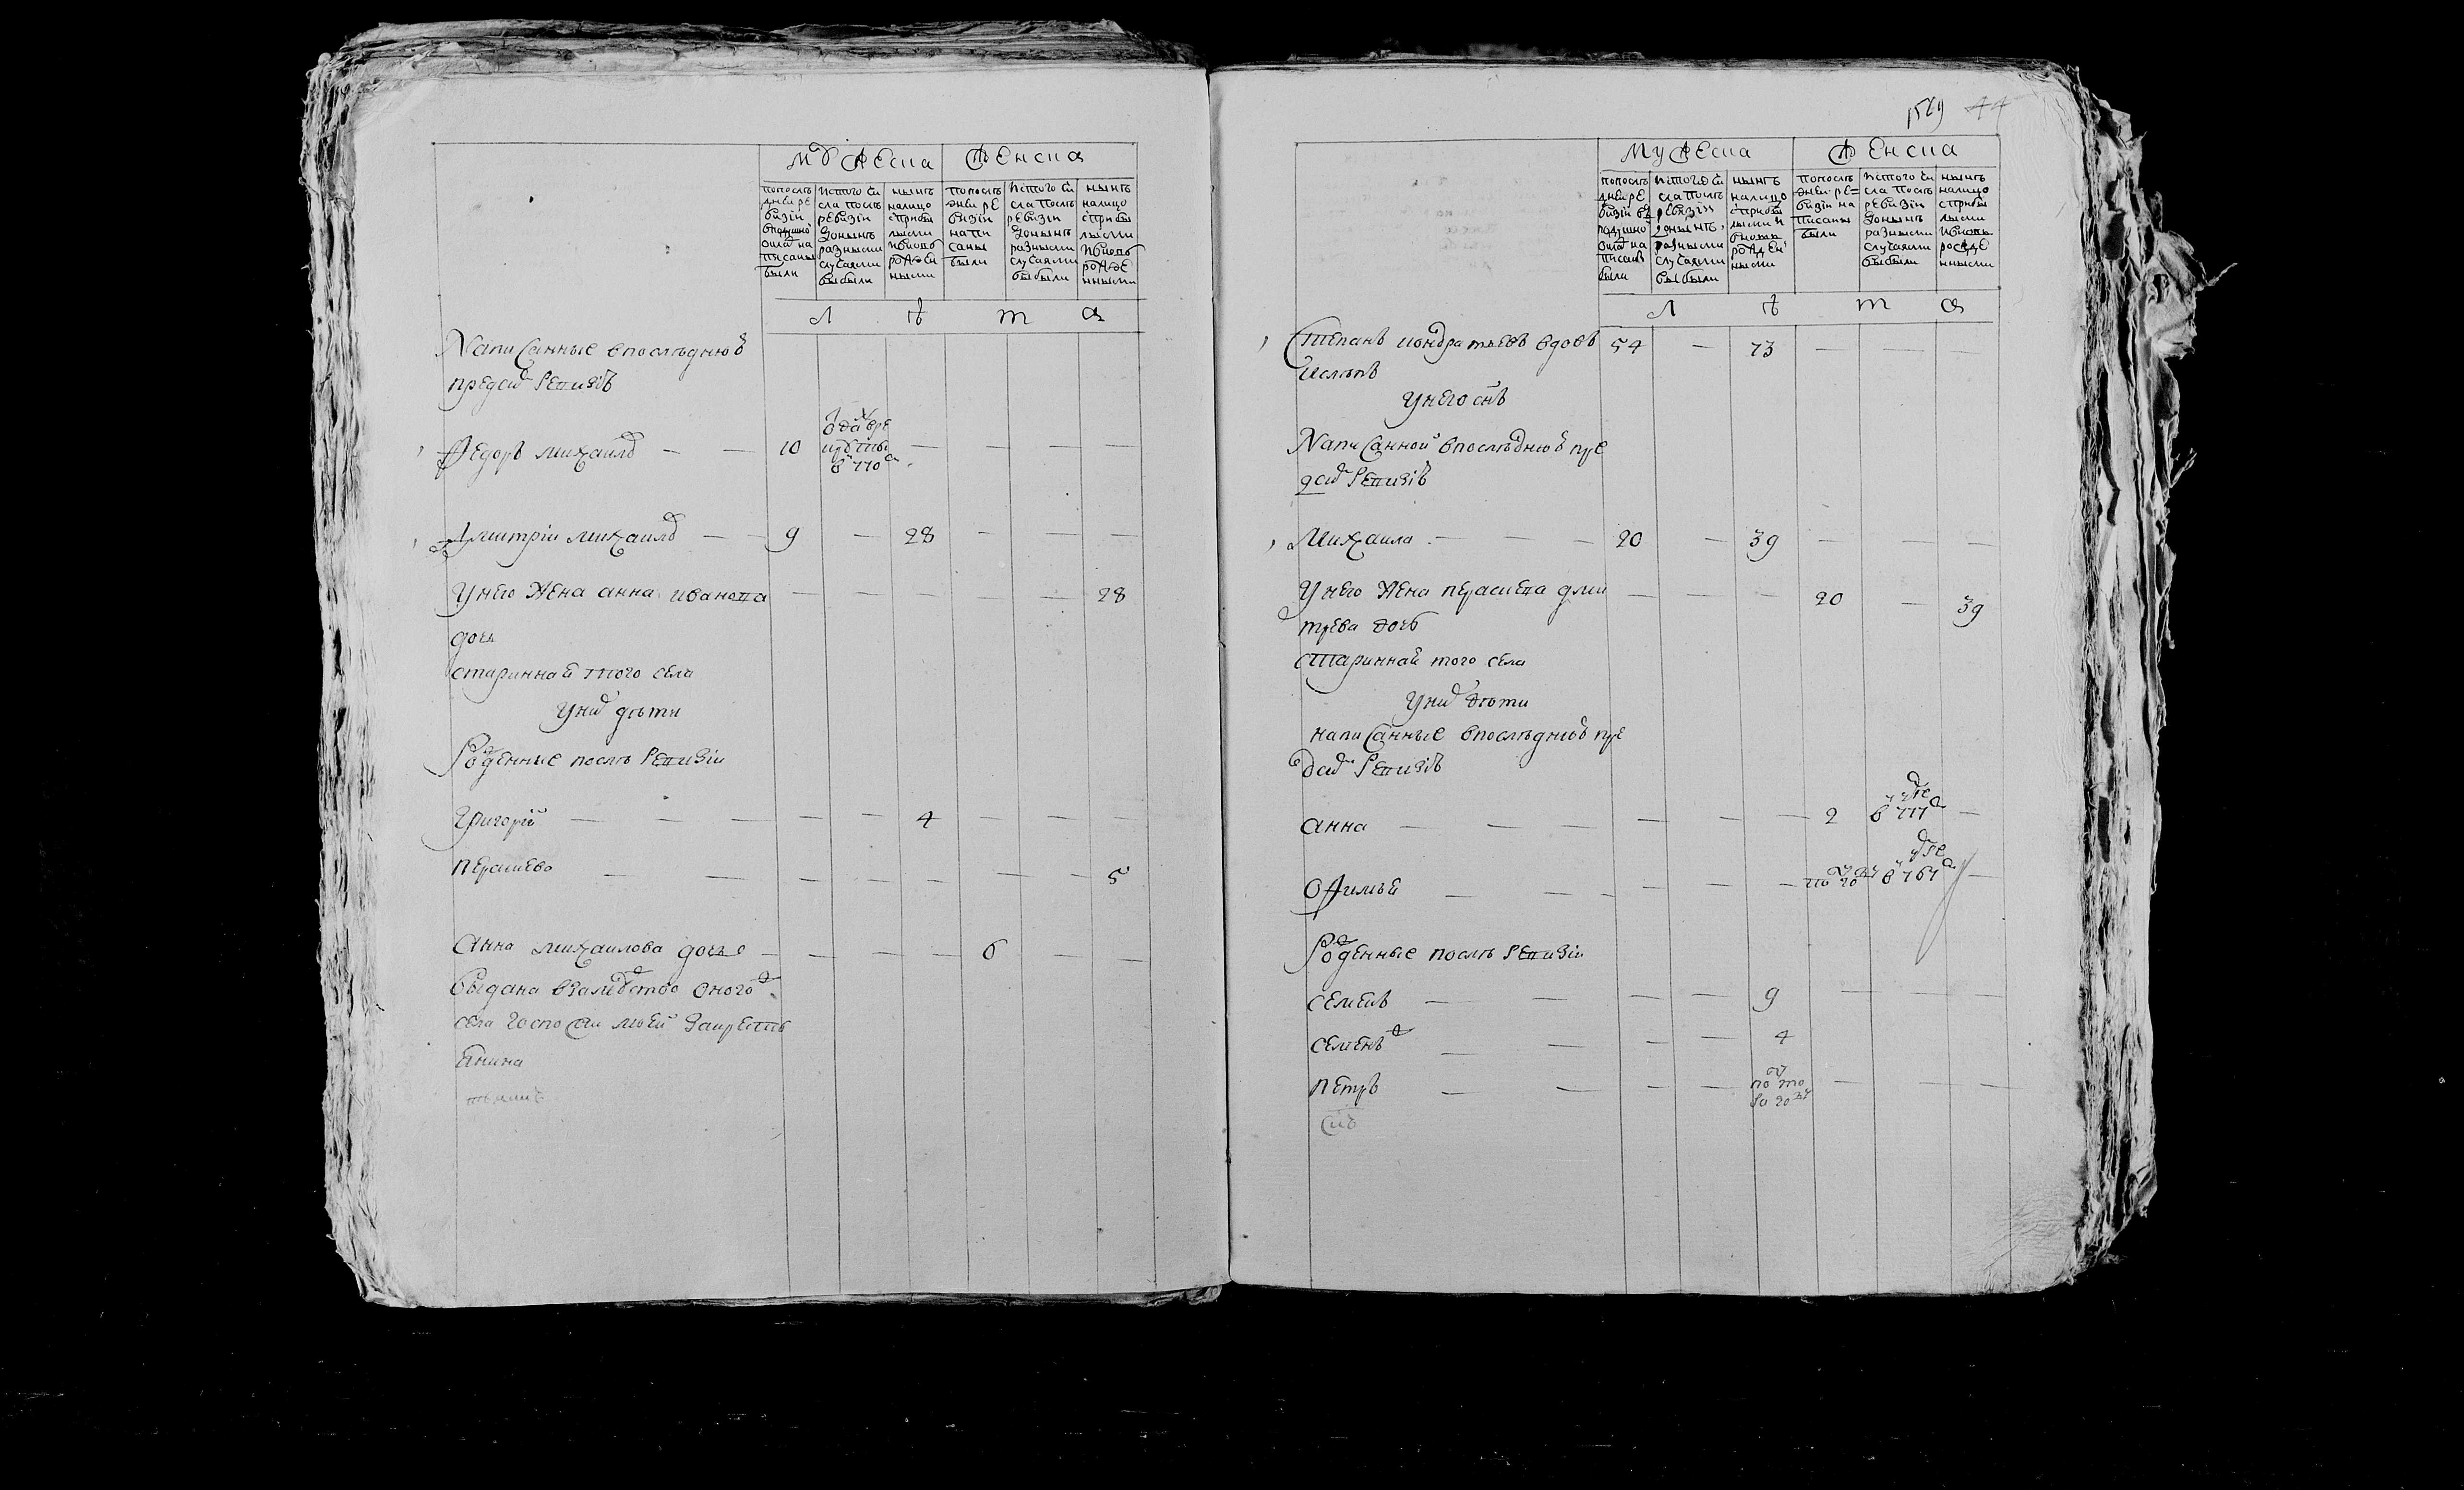 мужеска женска
попослѣ днеи ре визіи вподушно окла на писаны были
истого чи сла послѣ ревизіи донынѣ разными случаями выбыли
нынѣ налицо сприбы лыми ивновь рожден ными
попослѣ днеи ре визіи напи саны были
исътого чи сла послѣ ревизіи донынѣ разными случаями выбыли
нынѣ налицо сприбы лыми ивновь рожде нными
л ѣ т а
Написанные впослѣднюю
предси ревизію
Федоръ михаило — — 10 отда в ре круты в 770 — — — —
Дмитріи михаило — — 9 — 28 — — —
У него жена анна иванова — — — — — 28
дочь
стариннаѧ того села
У них дѣти
Рожденные послѣ ревизіи
Григореи — — — — — 4 — — —
Пераскево — — — — — — — — 5
Анна михаилова дочь — — — — 6 — —
выдана взамужство оного
села

1529 44
мужеска женска
попослѣ днеи ре визіи въ подушно окла на писаны были
исътого чи сла послѣ ревизіи донынѣ разными случаями выбыли
нынѣ налицо сприбы лыми и вновь рожден ными
попослѣ днеи ре= визіи на писаны были
исътого чи сла послѣ ревизіи донынѣ разными случаями выбыли
нынѣ налицо сприбы лыми ивновь рожде нными
л ѣ т а
Степанъ кондратьевъ вдовъ 54 — 73 — — —
ислѣпъ
У него снъ
Написанной впослѣднюю пре
дси ревизію
Михаила — — — 20 — 39 — — —
У него жена пераскева дми — — — 20 — 39
трева дочь
стариннаѧ того села
У них дѣти
написанные впослѣднюю пре
дси ревизію
анна — — — — — — 2 в 771 —
Офимьѧ — — — — — в 767 —
Рожденные послѣ ревизіи
семенъ — — — — 9 — — —
семенъ — — — — 4
петръ — — — — полто ра го — — —